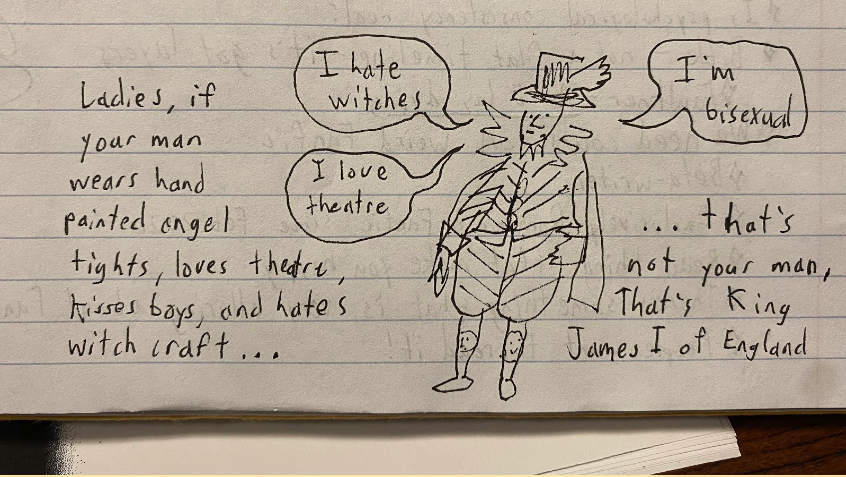 Ladies, if
your man
wears hand
painted angel
tights, loves theatre,
kisses boys, and hates
witch craft...
I hate
witches
I love
theatre
I'm
bisexual
... that's
not your man,
That's King
James I of England